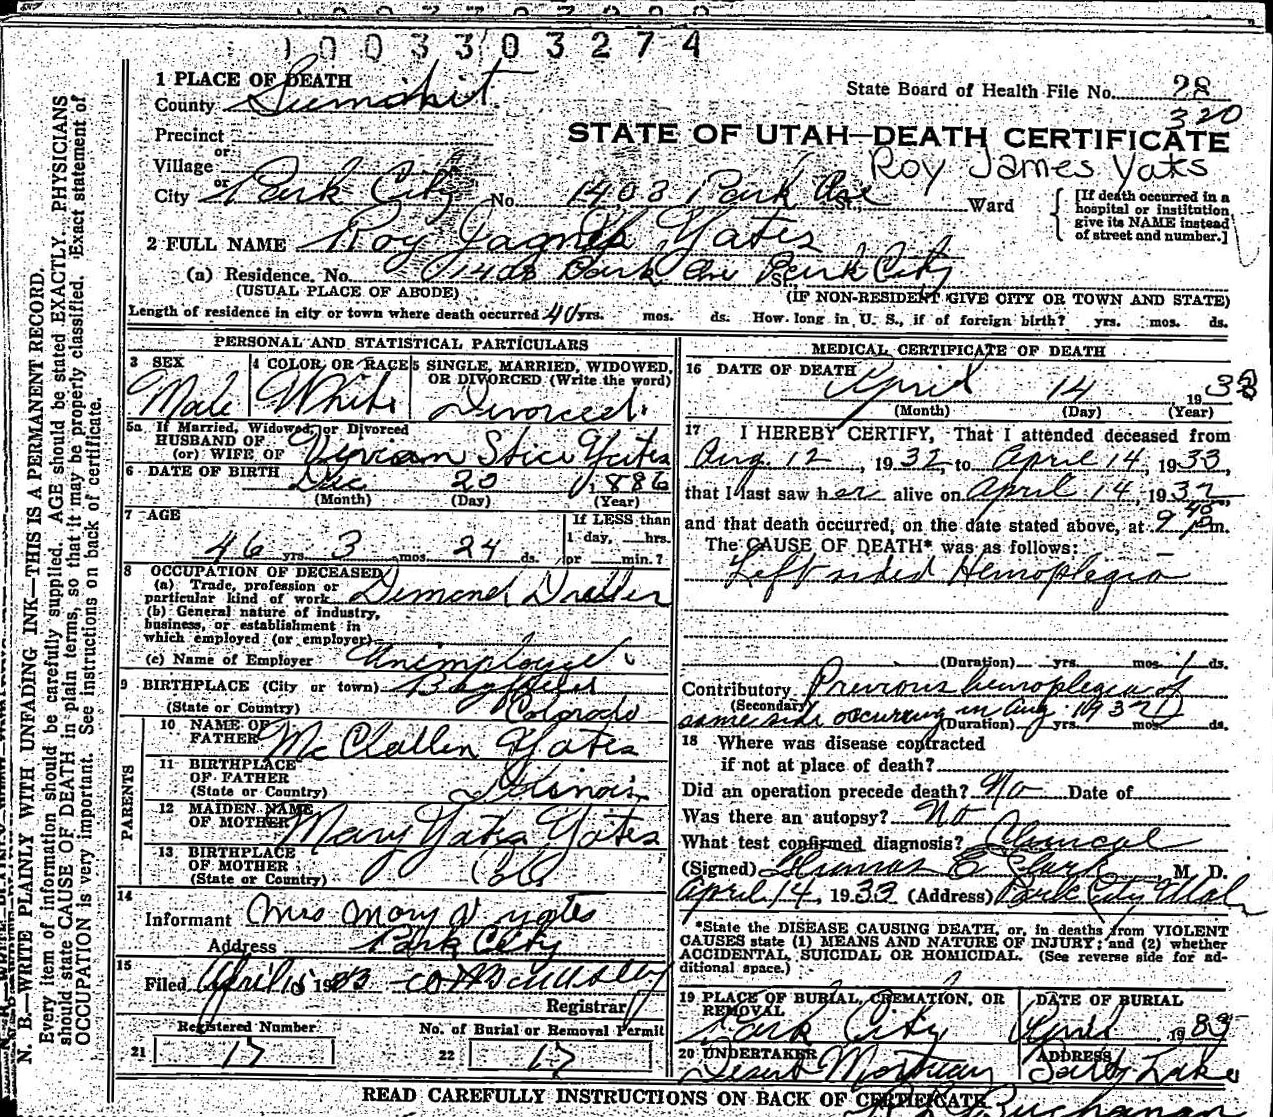 1003303274
1 PLACE OF DEATH
County Summit
State Board of Health File No. 28
320
Precinct
or
STATE OF UTAH—DEATH CERTIFICATE
Village
Roy James Yats
or
City Park City No. 1403 Park Ave St., Ward
[If death occurred in a hospital or institution, give its NAME instead of street and number.]
2 FULL NAME Roy Yates
(a) Residence, No. 1403 Park Ave Park City St.,
(USUAL PLACE OF ABODE) (IF NON-RESIDENT GIVE CITY OR TOWN AND STATE)
Length of residence in city or town where death occurred 40 yrs. mos. ds. How long in U. S., if of foreign birth? yrs. mos. ds.
PERSONAL AND STATISTICAL PARTICULARS
3 SEX
Male
4 COLOR OR RACE
White
5 SINGLE, MARRIED, WIDOWED, OR DIVORCED (Write the word)
Divorced
5a If Married, Widowed, or Divorced
HUSBAND OF
(or) WIFE OF Vivian Stice Yates
6 DATE OF BIRTH Dec 20 1886
(Month) (Day) (Year)
7 AGE
46 yrs. 3 mos. 24 ds.
If LESS than
1 day, hrs.
or min.?
8 OCCUPATION OF DECEASED
(a) Trade, profession or
particular kind of work Dimond Driller
(b) General nature of industry,
business, or establishment in
which employed (or employer)
(c) Name of Employer Unemployed
9 BIRTHPLACE (City or town)
(State or Country) Colorado
PARENTS
10 NAME OF
FATHER McClallen Yates
11 BIRTHPLACE
OF FATHER
(State or Country) Illinois
12 MAIDEN NAME
OF MOTHER Mary Yates Yates
13 BIRTHPLACE
OF MOTHER
(State or Country) Colo
14
Informant Mrs Mary V Yates
Address Park City
15
Filed April 15 1933
Registrar
Registered Number
21 17
No. of Burial or Removal Permit
22 17
MEDICAL CERTIFICATE OF DEATH
16 DATE OF DEATH
April 14 1933
(Month) (Day) (Year)
17 I HEREBY CERTIFY, That I attended deceased from
Aug. 12, 1932, to April 14, 1933,
that I last saw her alive on April 14, 1932
and that death occurred, on the date stated above, at 9 40 Pm.
The CAUSE OF DEATH* was as follows:
Left sided Hemoplegia
(Duration) yrs. mos. 1 ds.
Contributory Previous hemoplegia of
(Secondary)
same side occurring in Aug. 1932
(Duration) yrs. mos. ds.
18 Where was disease contracted
if not at place of death?
Did an operation precede death? No Date of
Was there an autopsy? No
What test confirmed diagnosis? Clinical
(Signed) Thomas E Clark M. D.
April 14, 1933 (Address) Park City Utah
*State the DISEASE CAUSING DEATH, or, in deaths from VIOLENT
CAUSES state (1) MEANS AND NATURE OF INJURY; and (2) whether
ACCIDENTAL, SUICIDAL OR HOMICIDAL. (See reverse side for ad-
ditional space.)
19 PLACE OF BURIAL, CREMATION, OR
REMOVAL
Park City
DATE OF BURIAL
1933
20 UNDERTAKER
Deseret Mortuary
ADDRESS
Salt Lake
READ CAREFULLY INSTRUCTIONS ON BACK OF CERTIFICATE
N. B.—WRITE PLAINLY WITH UNFADING INK—THIS IS A PERMANENT RECORD.
Every item of information should be carefully supplied. AGE should be stated EXACTLY. PHYSICIANS
should state CAUSE OF DEATH in plain terms, so that it may be properly classified. Exact statement of
OCCUPATION is very important. See instructions on back of certificate.